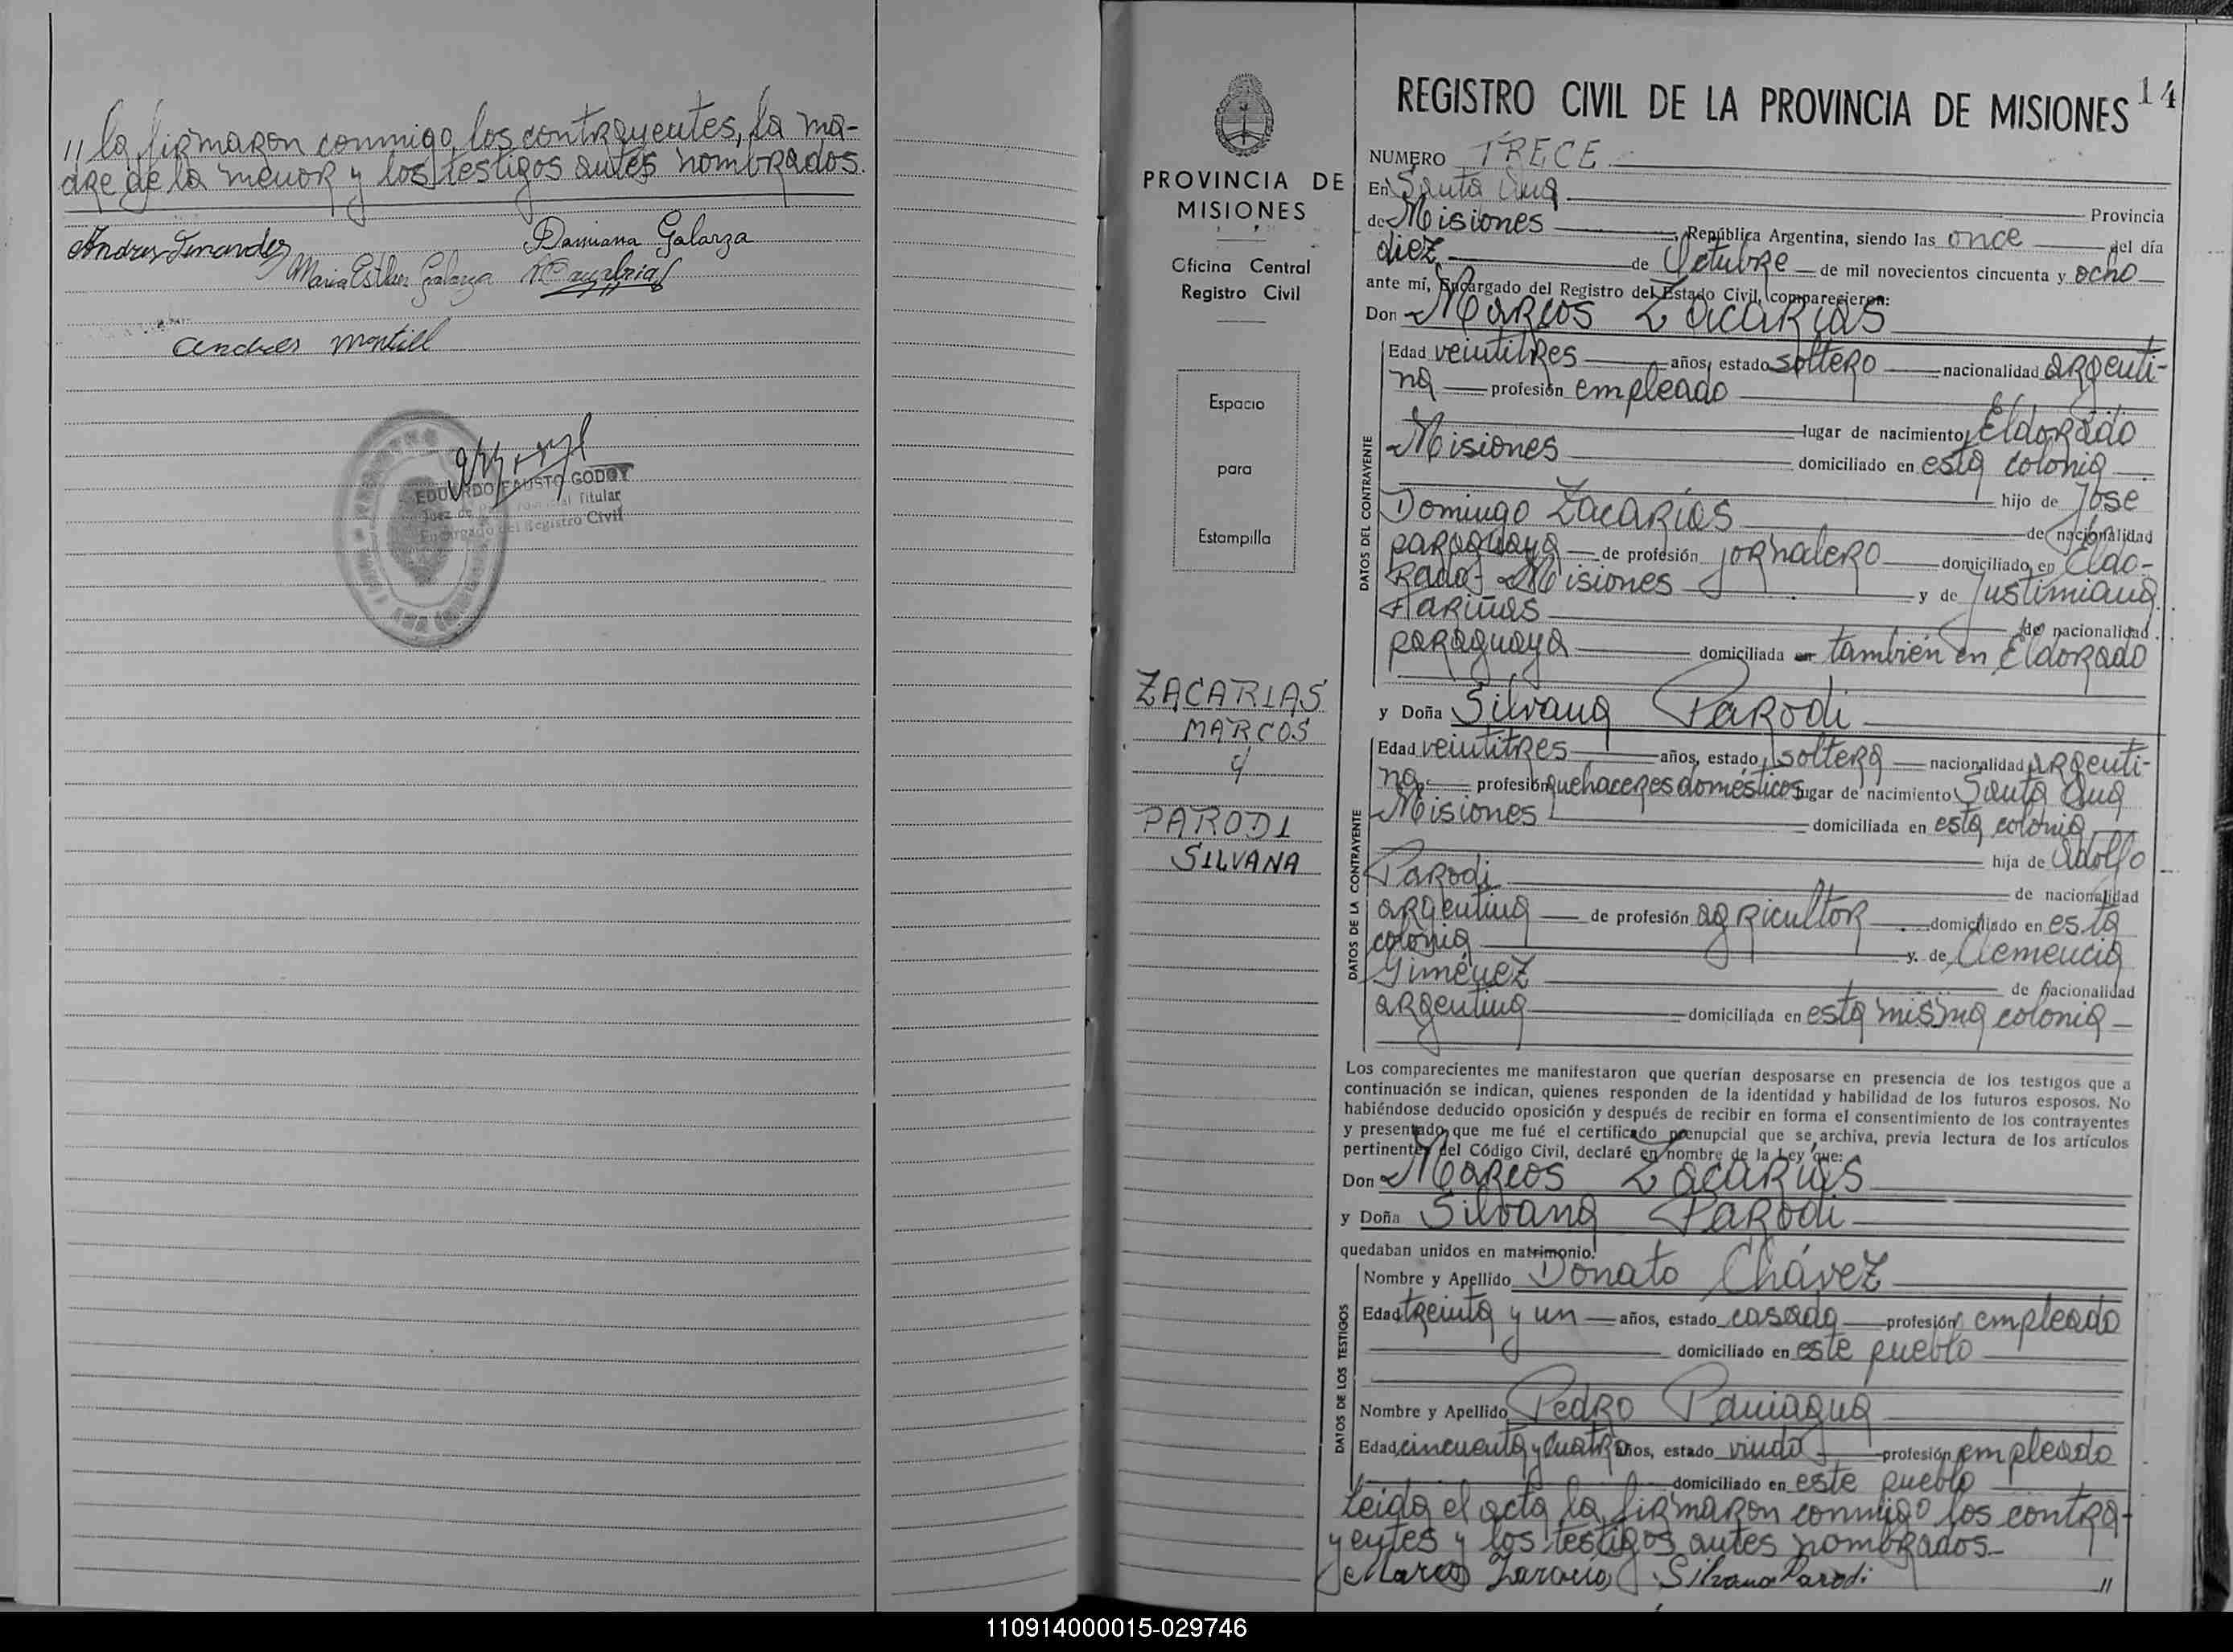 // la firmaron conmigo los contrayentes, la ma-
dre de la menor y los testigos antes nombrados.
Damiana Galarza
Andres Fernandez
Maria Esther Galarza
Andres Montiel
EDUARDO FAUSTO GODOY
Juez de Titular
Encargado del Registro Civil
PROVINCIA DE
MISIONES
Oficina Central
Registro Civil
Espacio
para
Estampilla
ZACARIAS
MARCOS
y
PARODI
SILVANA
14
REGISTRO CIVIL DE LA PROVINCIA DE MISIONES
NUMERO TRECE
En Santa Ana Provincia
de Misiones , República Argentina, siendo las once del día
diez de Octubre de mil novecientos cincuenta y ocho
ante mí, Encargado del Registro del Estado Civil, comparecieron:
Don Marcos Zacarías
DATOS DEL CONTRAYENTE
Edad veintitres años, estado soltero nacionalidad argenti-
na profesión empleado
lugar de nacimiento Eldorado
Misiones domiciliado en esta colonia
hijo de Jose
Domingo Zacarías de nacionalidad
paraguaya de profesión jornalero domiciliado en Eldo-
rado - Misiones y de Justiniana
Fariñas de nacionalidad
paraguaya domiciliada en también en Eldorado
y Doña Silvana Parodi
DATOS DE LA CONTRAYENTE
Edad veintitres años, estado soltera nacionalidad argenti-
na profesión quehaceres domésticos lugar de nacimiento Santa Ana
Misiones domiciliada en esta colonia
hija de Adolfo
Parodi de nacionalidad
argentina de profesión agricultor domiciliado en esta
colonia y de Clemencia
Giménez de nacionalidad
argentina domiciliada en esta misma colonia
Los comparecientes me manifestaron que querían desposarse en presencia de los testigos que a
continuación se indican, quienes responden de la identidad y habilidad de los futuros esposos. No
habiéndose deducido oposición y después de recibir en forma el consentimiento de los contrayentes
y presentado que me fué el certificado prenupcial que se archiva, previa lectura de los artículos
pertinentes del Código Civil, declaré en nombre de la Ley que:
Don Marcos Zacarías
y Doña Silvana Parodi
quedaban unidos en matrimonio.
DATOS DE LOS TESTIGOS
Nombre y Apellido Donato Chávez
Edad treinta y un años, estado casado profesión empleado
domiciliado en este pueblo
Nombre y Apellido Pedro Paniagua
Edad cincuenta y cuatro años, estado viudo profesión empleado
domiciliado en este pueblo
Leida el acta la firmaron conmigo los contra-
yentes y los testigos antes nombrados.
Marcos Zacaria Silvana Parodi //
110914000015-029746